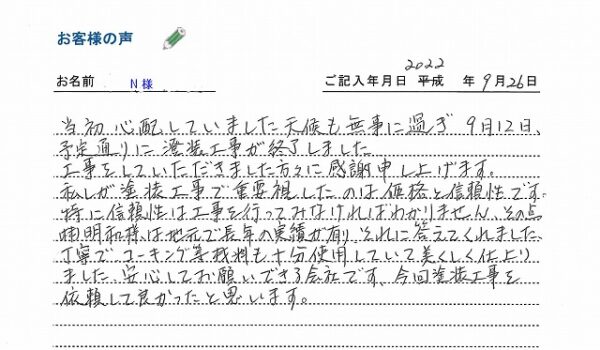 お客様の声
お名前 N様 ご記入年月日 平成 2022 年 9月26日
当初心配していました天候も無事に過ぎ 9月12日、
予定通りに塗装工事が終了しました
工事をしていただきました方々に感謝申し上げます。
私しが塗装工事で重要視したのは価格と信頼性です
特に信頼性は工事を行ってみなければわかりません、その点
明和様は地元で長年の実績が有り、それに答えてくれました、
丁寧でコーキング等材料も十分使用していて美しく仕上り
ました 安心してお願いできる会社です、今回塗装工事を
依頼して良かったと思います。